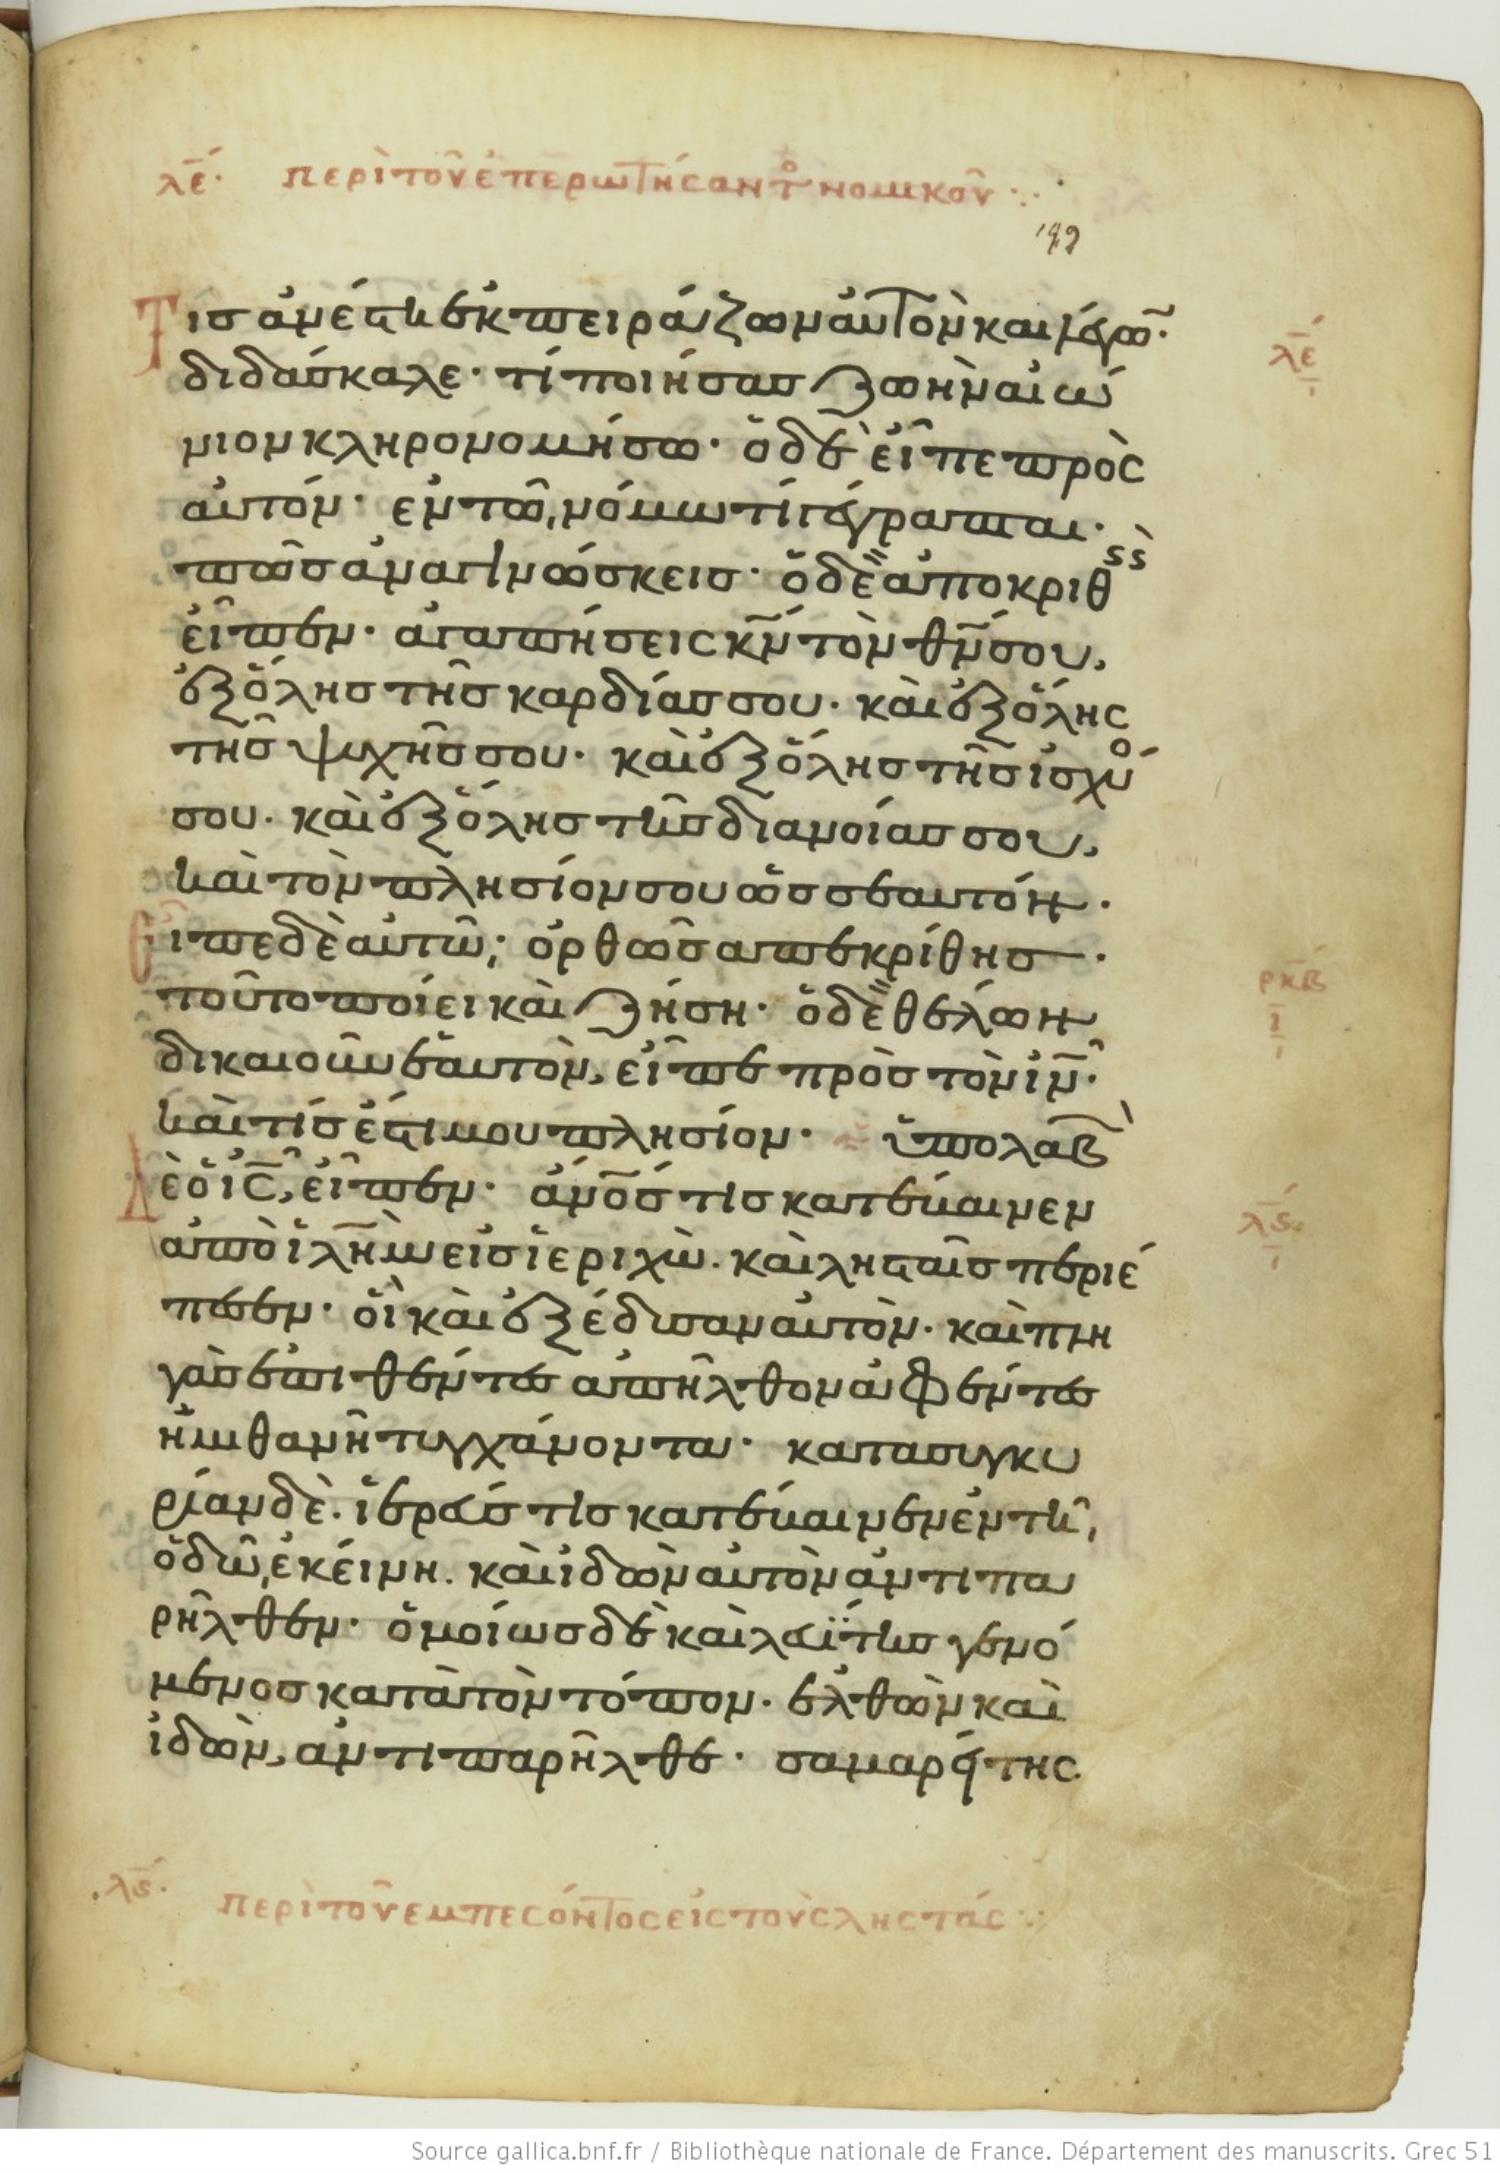 λε περὶ τοῦ ἐπερωτήσαντο νομικοῦ
149
Τις ἀνέστη ἐκπειράζων αὐτὸν καὶ λέγω
λε
διδάσκαλε· τί ποιήσας ζωὴν αἰώ
νιον κληρονομήσω· ὁ δὲ εἶπε πρὸς
αὐτόν· ἐν τῶ νόμω τί γέγραπται·
πῶς ἀναγινώσκεις· ὁ δὲ ἀποκριθ
εἶπεν· ἀγαπήσεις κν τὸν θν σου,
ἐξ ὅλης τῆς καρδίας σου· καὶ ἐξ ὅλης
τῆς ψυχῆς σου· καὶ ἐξ ὅλης τῆς ἰσχύο
σου· καὶ ἐξ ὅλης τῆς διανοίας σου,
καὶ τὸν πλησίον σου ὡς σεαυτόν·
Εἶπε δὲ αὐτῶ, ὀρθῶς ἀπεκρίθης·
ρκβ
ι
τοῦτο ποίει καὶ ζήση· ὁ δὲ θέλων
δικαιοῦν ἑαυτὸν, εἶπε πρὸς τὸν ιν·
καὶ τίς ἐστί μου πλησίον· ὑπολαβ
λς
Δὲ ὁ ις, εἶπεν· ἄνος τις κατέβαινεν
ἀπὸ ἱλημ εἰς ἱεριχὼ· καὶ λησταῖς περιέ
πεσεν· οἳ καὶ ἐξέδυσαν αὐτὸν· καὶ πλη
γὰς ἐπιθέντες ἀπῆλθον ἀφέντες
ἡμιθανῆ τυγχάνοντα· κατασυγκυ
ρίαν δὲ· ἱερεύς τις κατέβαινεν ἐν τῆ
ὁδῶ ἐκείνη· καὶ ἰδὼν αὐτὸν ἀντιπα
ρῆλθεν· ὁμοίως δὲ καὶ λευΐτης γενό
μενος κατὰ τὸν τόπον· ἐλθὼν καὶ
ἰδὼν, ἀντιπαρῆλθε· σαμαρείτης
λς περὶ τοῦ ἐμπεσόντος εἰς τοὺς ληστάς
Source gallica.bnf.fr / Bibliothèque nationale de France. Département des manuscrits. Grec 51